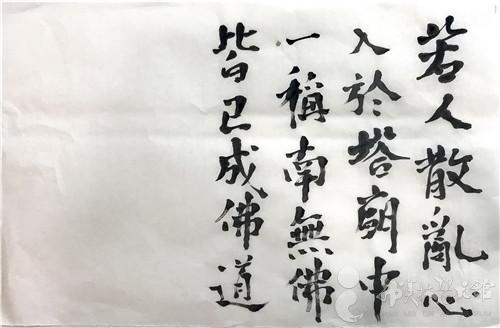 若人散亂心
入於塔廟中
一稱南無佛
皆已成佛道